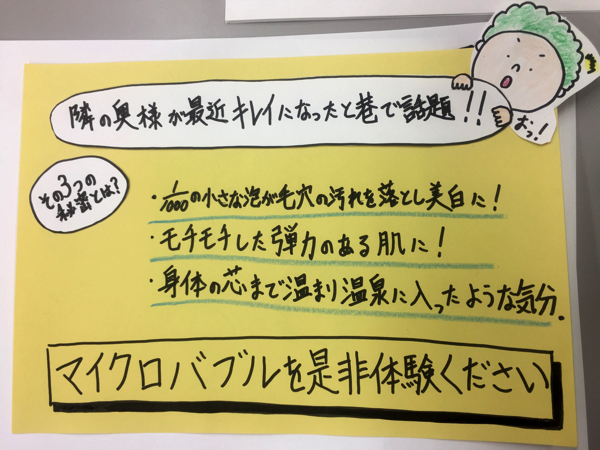 隣の奥様が最近キレイになったと巷で話題!!
おっ!
その3つの
秘密とは?
・1/1000の小さな泡が毛穴の汚れを落とし美白に!
・モチモチした弾力のある肌に!
・身体の芯まで温まり温泉に入ったような気分.
マイクロバブルを是非体験ください